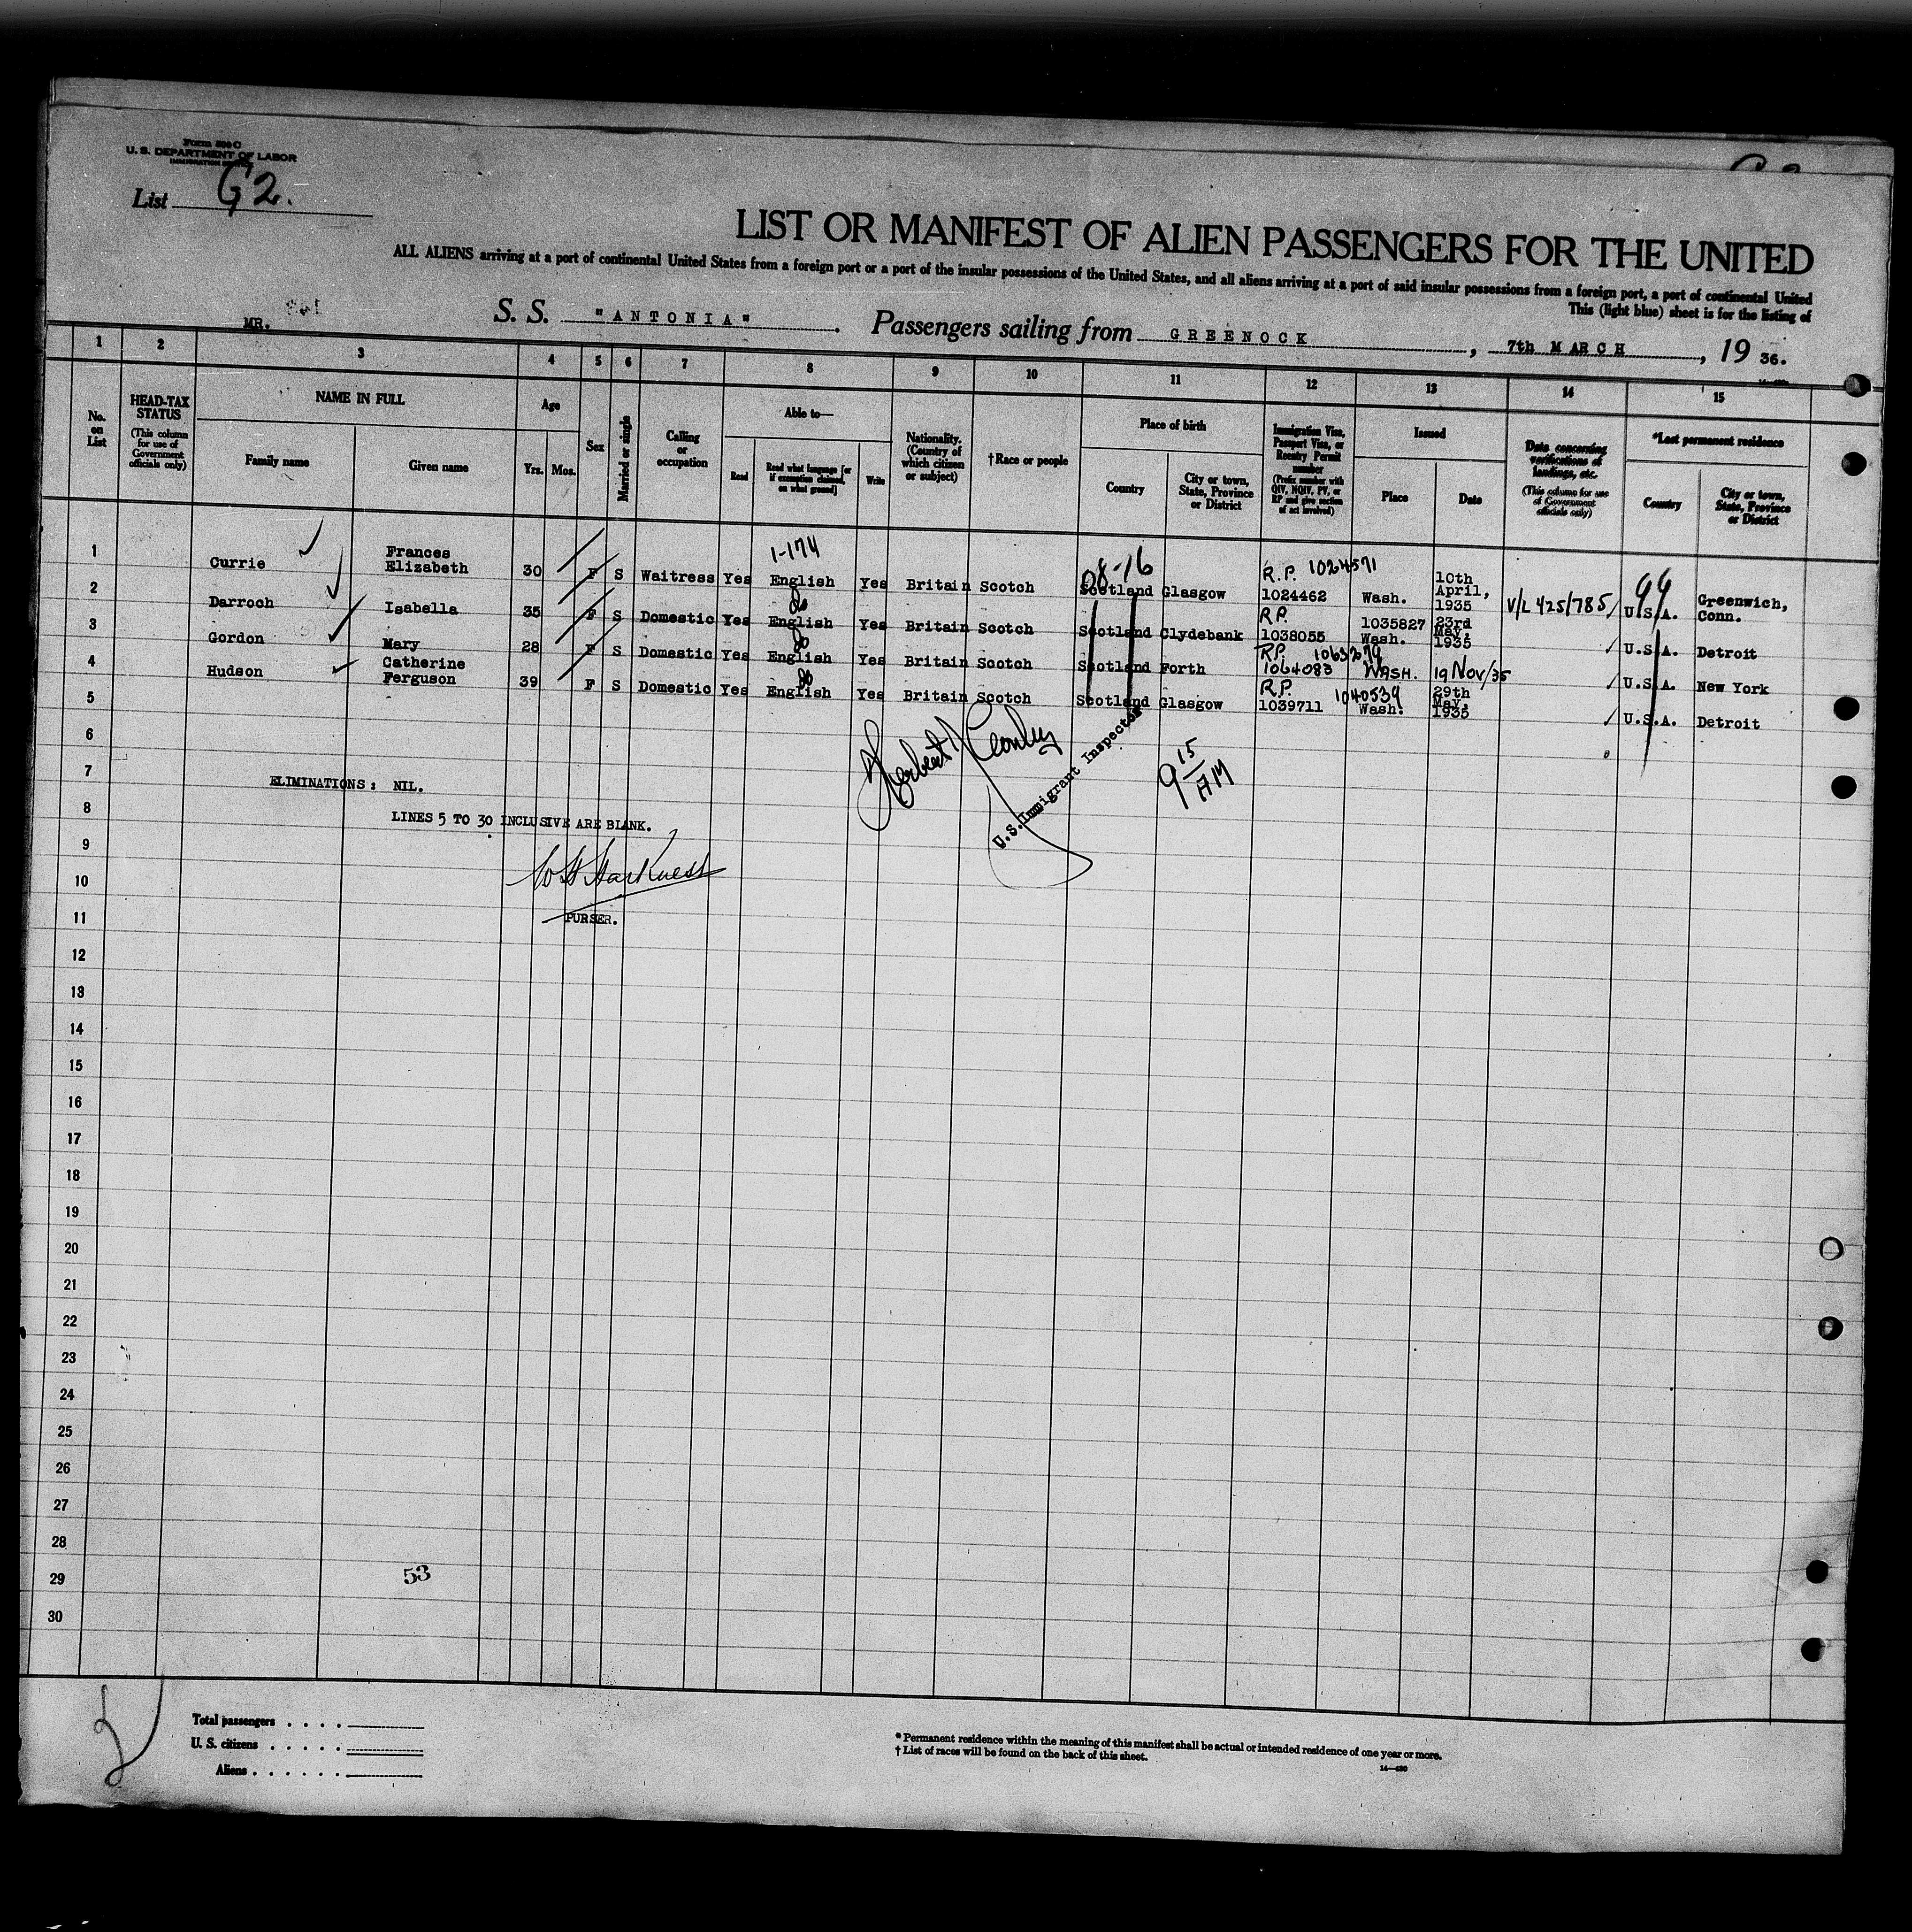 Form 500 C
U. S. DEPARTMENT OF LABOR
IMMIGRATION SERVICE
List G2.
LIST OR MANIFEST OF ALIEN PASSENGERS FOR THE UNITED
ALL ALIENS arriving at a port of continental United States from a foreign port or a port of the insular possessions of the United States, and all aliens arriving at a port of said insular possessions from a foreign port, a port of continental United
This (light blue) sheet is for the listing of
MR. S. S. "ANTONIA". Passengers sailing from GREENOCK, 7th MARCH, 19 36.
1 2 3 4 5 6 7 8 9 10 11 12 13 14 15
No. on List
HEAD-TAX STATUS
(This column for use of Government officials only)
NAME IN FULL
Family name Given name
Age
Yrs. Mos.
Sex
Married or single
Calling or occupation
Able to—
Read
Read what language [or if exemption claimed, on what ground]
Write
Nationality. (Country of which citizen or subject)
†Race or people
Place of birth
Country
City or town, State, Province or District
Immigration Visa, Passport Visa, or Reentry Permit number
(Prefix number with QIV, NQIV, PV, or RP and give section of act involved)
Issued
Place Date
Data concerning verifications of landings, etc.
(This column for use of Government officials only)
*Last permanent residence
Country
City or town, State, Province or District
1-174
08-16
1 Currie Frances Elizabeth 30 F S Waitress Yes English Yes Britain Scotch Scotland Glasgow R.P. 1024571 1024462 Wash. 10th April, 1935 V/L 425/785 U.S.A. Greenwich, Conn.
2 Darroch Isabella 35 F S Domestic Yes English Yes Britain Scotch Scotland Clydebank R.P. 1038055 1035827 Wash. 23rd May, 1935 U.S.A. Detroit
3 Gordon Mary 28 F S Domestic Yes English Yes Britain Scotch Scotland Forth R.P. 1064083 WASH. 19 Nov/35 U.S.A. New York
4 Hudson Catherine Ferguson 39 F S Domestic Yes English Yes Britain Scotch Scotland Glasgow R.P. 1039711 1040539 Wash. 29th May, 1935 U.S.A. Detroit
5
6
7
ELIMINATIONS: NIL.
U.S. Immigrant Inspector
9 15 AM
8
LINES 5 TO 30 INCLUSIVE ARE BLANK.
9
10
W H Harkness
11
PURSER.
12
13
14
15
16
17
18
19
20
21
22
23
24
25
26
27
28
29
53
30
Total passengers . . . .
U. S. citizens . . . . .
Aliens . . . . . .
* Permanent residence within the meaning of this manifest shall be actual or intended residence of one year or more.
† List of races will be found on the back of this sheet.